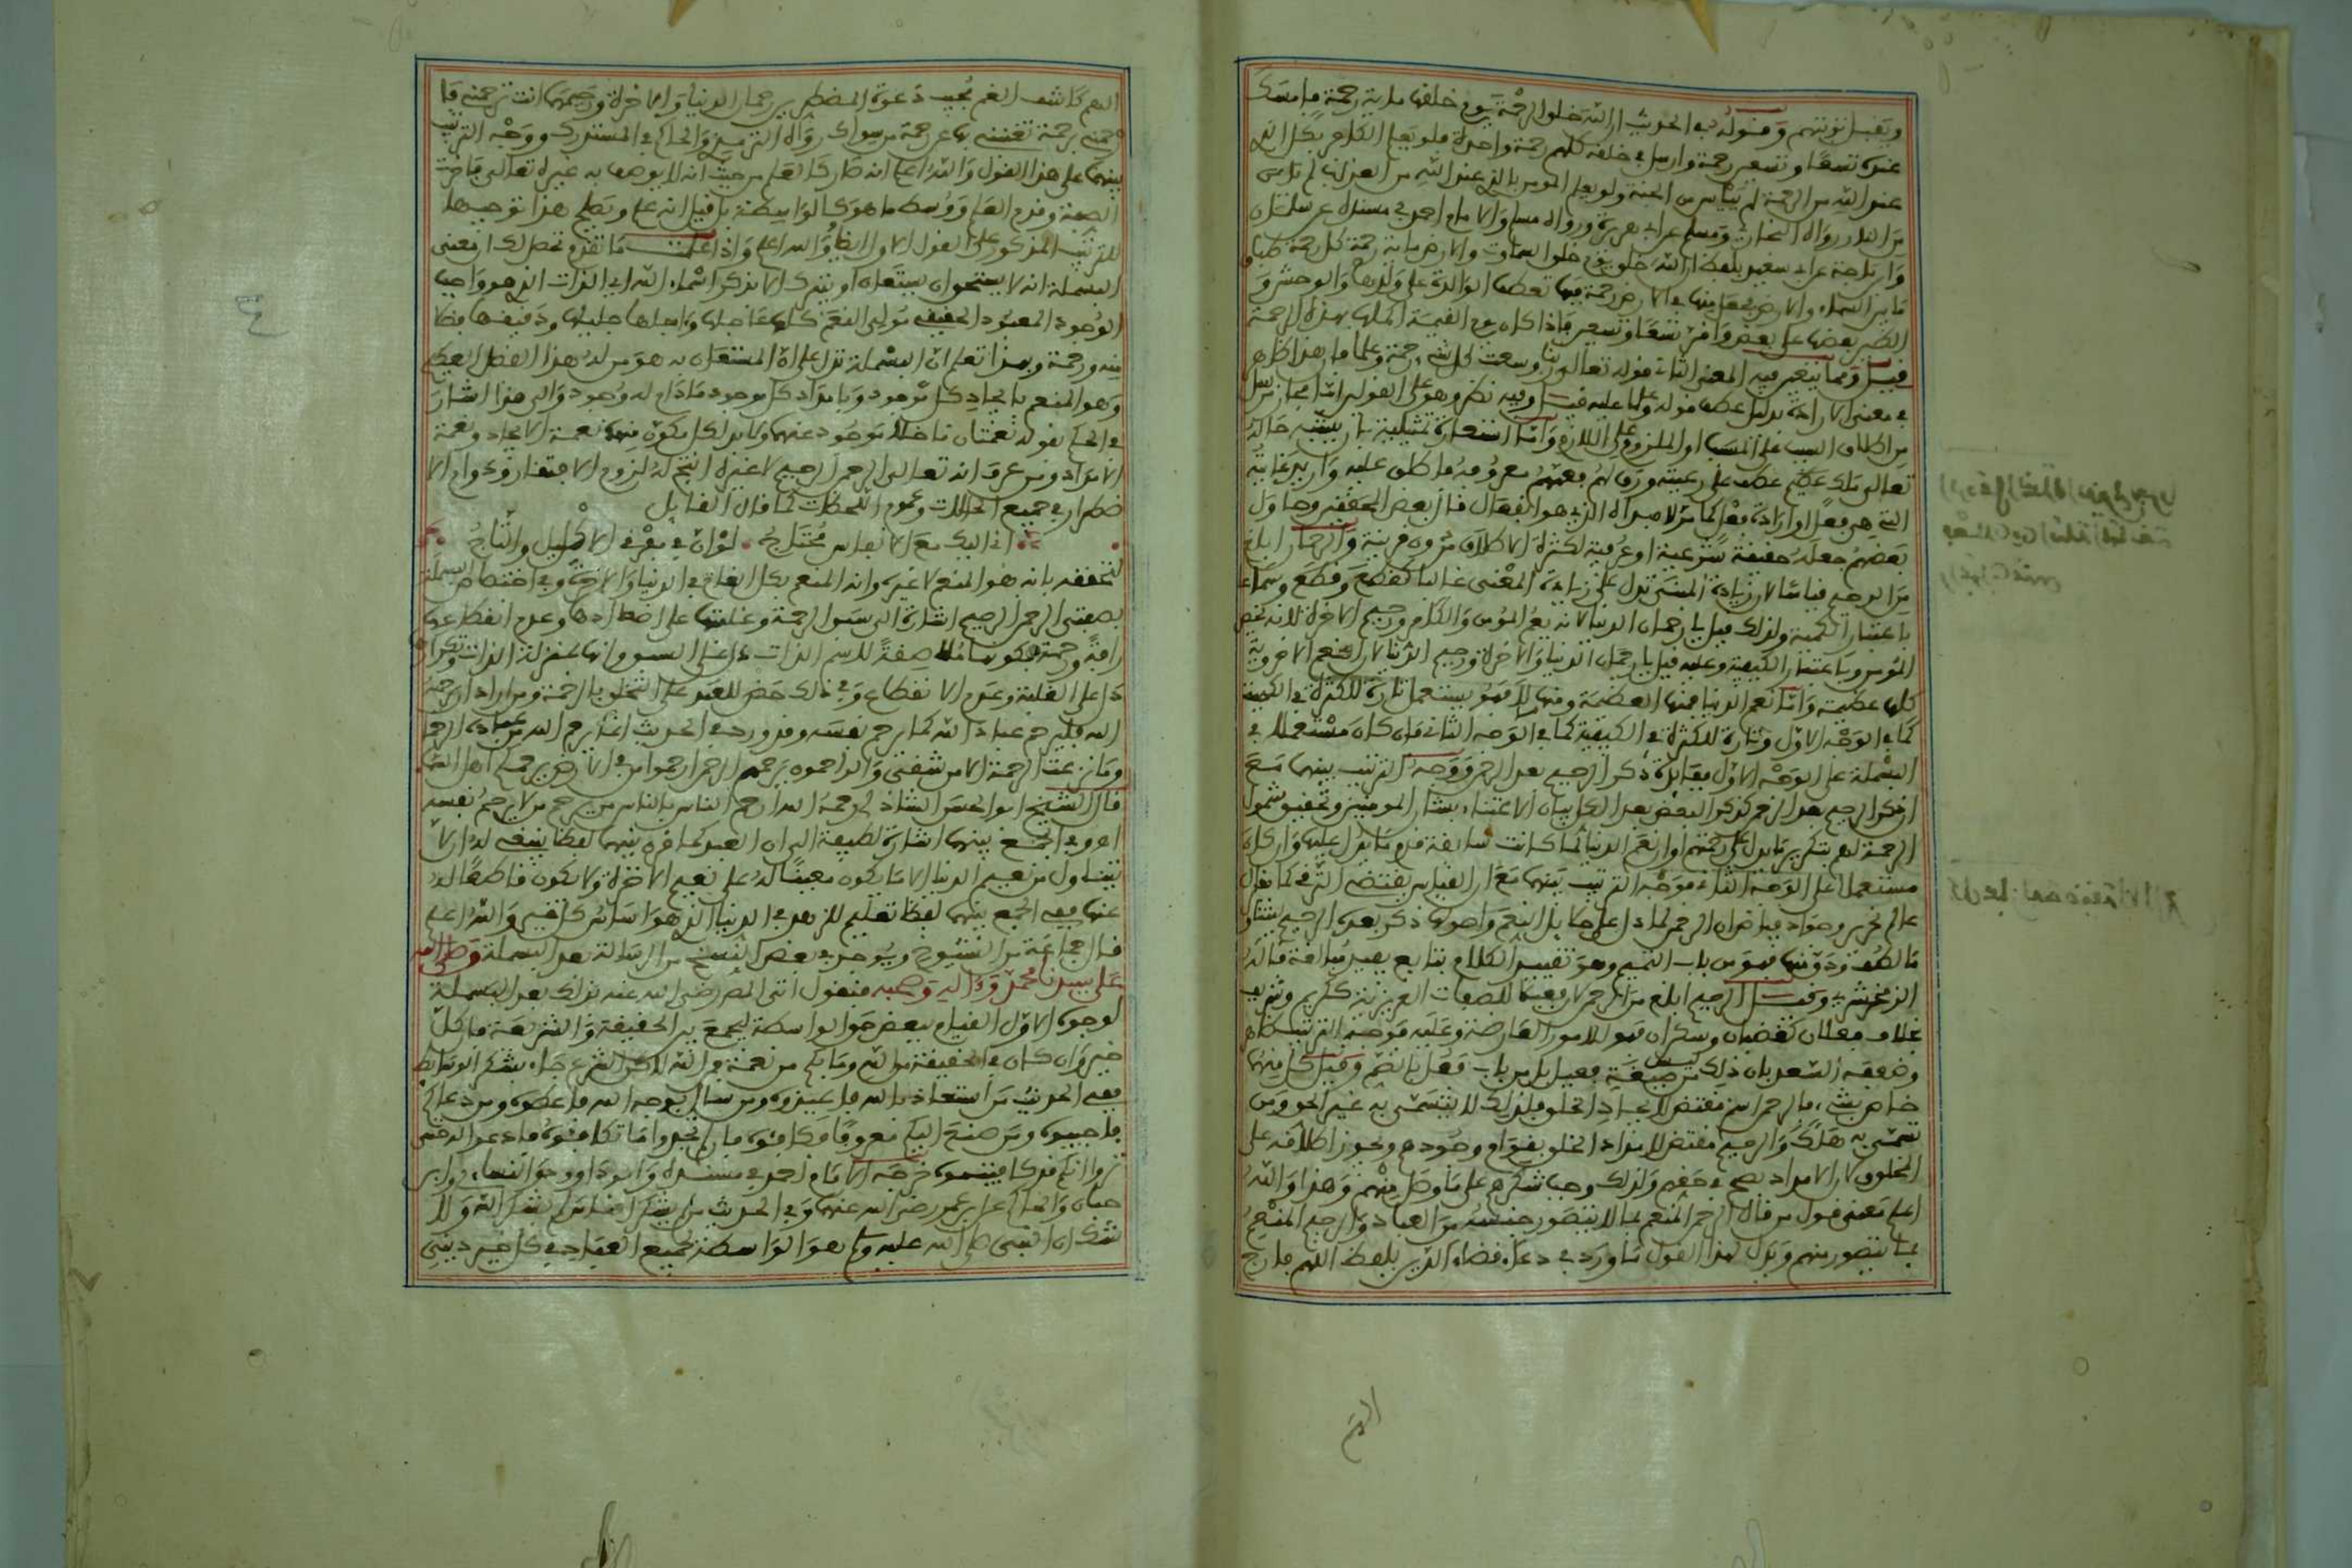 ويقبل توبتهم وقوله في الحديث ان الله خلق الرحمة يوم خلقها مائة رحمة فامسك
عنده تسعا وتسعين رحمة وارسل في خلقه كلهم رحمة واحدة فلو يعلم الكافر بكل الذي
عند الله من الرحمة لم ييأس من الجنة ولو يعلم المومن بالذي عند الله من العذاب لم يأمن
من النار رواه البخاري ومسلم عن ابي هريرة ورواه مسلم والامام احمد في مسنده عن سلمان
وابن ماجة عن ابي سعيد بلفظ ان الله خلق يوم خلق السماوات والارض مائة رحمة كل رحمة طباق
ما بين السماء والارض فجعل منها في الارض رحمة فبها تعطف الوالدة على ولدها والوحش و
الطير بعضها على بعض واخر تسعا وتسعين فاذا كان يوم القيمة اكملها بهذه الرحمة
في معنى الارادة بدليل عطف قوله وعلما عليه قيل وفيه نظر وهو على القولين اما مجاز مرسل
من اطلاق السبب على المسبب او الملزوم على اللازم واما استعارة تمثيلية بان يشبه حاله
تعالى بملك عطف على رعيته ورق لهم فعمهم معروفه فاطلق عليه واريد غايته
التي هي فعل او ارادة فعل لا مبداه الذي هو انفعال قال بعض المحققين وحاول
بعضهم جعله حقيقة شرعية او عرفية لكثرة الاطلاق بدون قرينة والرحمان ابلغ
من الرحيم قياسا لان زيادة المبنى تدل على زيادة المعنى غالبا كقطع وقطع وسماء
باعتبار الكمية ولذلك قيل يا رحمان الدنيا لانه يعم المؤمن والكافر ورحيم الاخرة لانه يخص
المومن وباعتبار الكيفية وعليه قيل يا رحمان الدنيا والاخرة ورحيم الدنيا لان النعم الاخروية
كلها عظيمة واما نعم الدنيا فمنها العظيمة ومنها لا فهو يستعمل تارة للكثرة في الكمية
كما في الوجه الاول وتارة للكثرة في الكيفية كما في الوجه الثاني فان كان مستعملا في
البسملة على الوجه الاول ففائدة ذكر الرحيم بعد الرحمن ووجه الترتيب بينهما مع
ان ذكر الرحيم بعد الرحمن كذكر البعض بعد الكل بيان الاعتناء بشان المومنين وتحقيق شمول
الرحمة لهم بتكرير ما يدل على رحمتهم او ان نعم الدنيا لما كانت سابقة قدم ما يدل عليها وان كان
مستعملا على الوجه الثاني فوجه الترتيب بينهما مع ان القياس يقتضي الترقي كما يقال
عالم نحرير وجواد فياض ان الرحمن لما دل على جلائل النعم واصولها ذكر بعده الرحيم ليتناول
ما لطف ودق منها فهو من باب التتميم وهو تقييد الكلام بتابع يفيد مبالغة قاله
الزمخشري وقيل الرحيم ابلغ من الرحمن لان فعيلا للصفات الغريزية ككريم وشريف
بخلاف فعلان كغضبان وسكران فهو للامور العارضة وعليه فوجه الترتيب ظاهر
وضعفه السعد بان ذلك ليس من صيغة فعيل بل من باب فعل بالضم وقيل كل منهما
خاص بشيء فالرحمان مقتض لايجاد الخلق فلذلك لا يتسمى به غير الحق ومن
تسمى به هلك والرحيم مقتض لامداد الخلق بقوام وجودهم ويجوز اطلاقه على
المخلوق لان الامداد يصح في حقهم ولذلك وجب شكرهم على ما وصل منهم وهذا والله
اعلم معنى قول من قال الرحمن المنعم بما لا يتصور جنسه من العباد والرحيم المنعم
بما يتصور منهم ويدل لهذا القول ما ورد في دعاء قضاء الدين بلفظ اللهم فارج
اللهم
الهم كاشف الغم مجيب دعوة المضطرين رحمان الدنيا والاخرة ورحيمهما انت ترحمني فا
رحمني برحمة تغنيني بها عن رحمة من سواك رواه الترمذي والحاكم في المستدرك ووجه الترتيب
بينهما على هذا القول والله اعلم انه صار كالعلم من حيث انه لا يوصف به غيره تعالى فاخرت
الصفة وقدم العلم ووسط ما هو كالواسطة بل قيل انه علم ويصلح هذا توجيها
للترتيب المذكور على القول الاول ايضا والله اعلم واذا علمت ما تقدم تحصل لك ان معنى
البسملة انه لا يستحق ان يستعان او يتبرك الا بذكر اسماء الله اي الذات الذي هو واجب
الوجود المعبود الحقيقي مولي النعم كلها عاجلها واجلها جليلها ودقيقها فضلا
منه ورحمة وبهذا تعلم ان البسملة تدل على ان المستعان به هو من له هذا الفضل العظيم
وهو المنعم بايجاد كل موجود وبامداد كل موجود ما دام له وجود والى هذا اشار
في الحكم بقوله نعمتان ما خلا موجود عنهما ولا بد لكل مكون منهما نعمة الايجاد ونعمة
الامداد ومن عرف انه تعالى الرحمن الرحيم لا غيره انتج له لزوم الافتقار ودوام الا
ضطرار في جميع الحالات وعموم اللحظات كما قال القائل
اني اليك مع الانفاس محتاج لو ان في مفرقي الاكليل والتاج
لتحققه بانه هو المنعم لا غيره وانه المنعم بكل النعم في الدنيا والاخرة وفي اختصاص البسملة
بصفتي الرحمن الرحيم اشارة الى سبق الرحمة وغلبتها على اضدادها وعدم انقطاعها
دال على الغلبة وعدم الانقطاع وفي ذلك حض للعبد على التخلق بالرحمة ومن اراد ان يرحمه
الله فليرحم عباد الله كما يرحم نفسه وقد ورد في الحديث انما يرحم الله من عباده الرحماء
وما نزعت الرحمة الا من شقي والراحمون يرحمهم الرحمن ارحموا من في الارض يرحمكم اهل السماء
قال الشيخ ابو الحسن الشاذلي رحمه الله ارحم الناس بالناس من يرحم من لا يرحم نفسه
اهـ وفي الجمع بينهما اشارة لطيفة الى ان العبد كما قرن بينهما لفظا ينبغي له ان لا
يتناول من نعيم الدنيا الا ما يكون معينا له على نعيم الاخرة ولا يكون قاطعا له
عنها ففي الجمع بينهما لفظا تعليم للزهد في الدنيا الذي هو اساس كل خير والله اعلم
قال جماعة من الشيوخ ويوجد في بعض النسخ من الرسالة بعد البسملة وصلى الله
على سيدنا محمد وءاله وصحبه فنقول اتى المص رضي الله عنه بذلك بعد البسملة
لوجوه الاول القيام ببعض حق الواسطة ليجمع بين الحقيقة والشريعة فان كل
خير وان كان في الحقيقة من الله وما بكم من نعمة فمن الله لاكن الشرع جاء بشكر الوسائط
ففي الحديث من استعاذ بالله فاعيذوه ومن سال بوجه الله فاعطوه ومن دعاكم
فاجيبوه ومن صنع اليكم معروفا فكافئوه فان لم تجدوا ما تكافئونه فادعوا له حتى
تروا انكم قد كافيتموه خرجه الامام احمد في مسنده وابو داوود والنساءي وابن
حبان والحاكم عن ابن عمر رضي الله عنهما وفي الحديث من لم يشكر الناس لم يشكر الله ولا
شك ان النبي صلى الله عليه وسلم هو الواسطة لجميع العباد في كل خير ديني